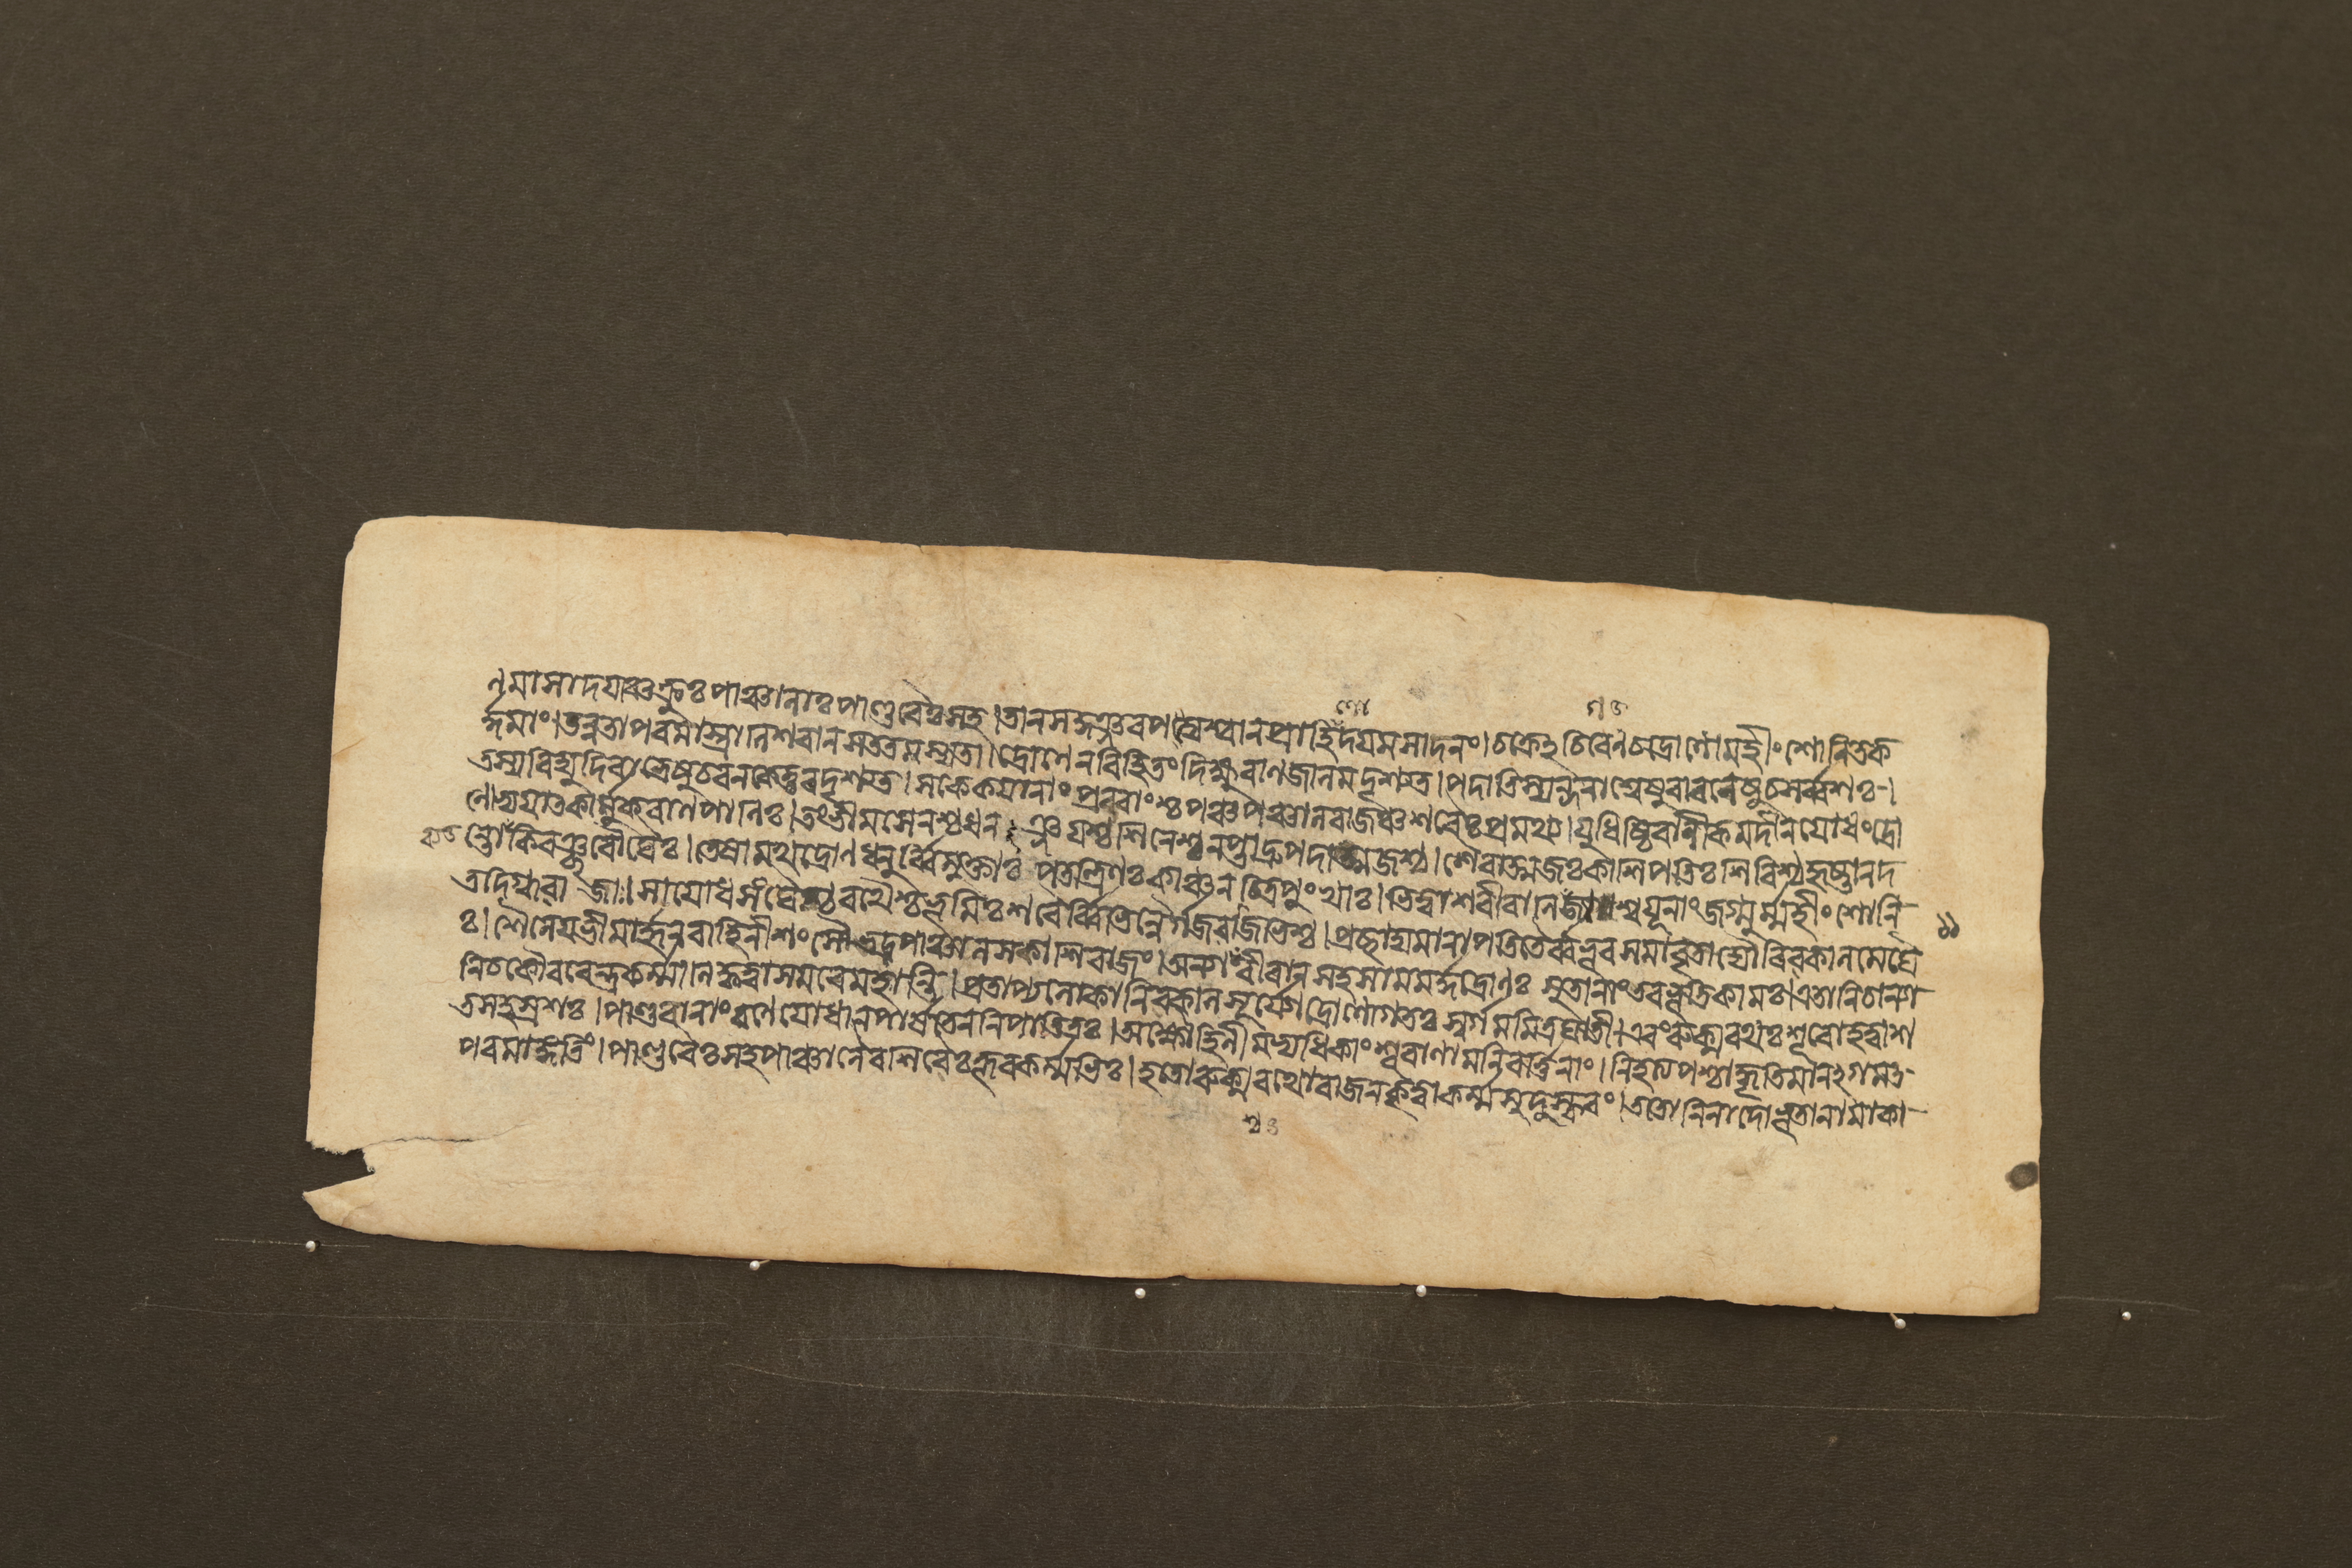 ণমাসাদযাঞ্চক্রুঃ পাঞ্চালাঃ পাণ্ডবৈঃ সহ। রথপত্ত্যশ্বান প্রাহিণোদ্যমসাদনং। চক্রেঽচিরেণ চ দ্রোণো মহীং শোণিতক
র্দ্দমাং। তন্বতা পরমাস্ত্রাণি শরান সততমস্যতা। দ্রোণেন বিহিতং দিক্ষু বাণজালমদৃশ্যত। পদাতিস্যন্দনাশ্বেষু বারণেষু চ সর্ব্বশঃ।
তস্য বিদ্যুদিবাভ্রেষু চরন কেতুরদৃশ্যত। স কেকযানাং প্রবরাংশ্চ পঞ্চ পাঞ্চালরাজঞ্চ শরৈঃ প্রমথ্য। যুধিষ্ঠিরানীকমদীনযোধং দ্রো
ণোভ্যযাত কার্ম্মুকবাণপাণিঃ। তং ভীমসেনশ্চ ধনঞ্জযশ্চ শিনেশ্চ নপ্তা দ্রুপদাত্মজশ্চ। শৈব্যাত্মজঃ কাশিপতিঃ শিবিশ্চ হৃষ্টা নদ
ন্তো ব্যকিরঞ্ছরৌঘৈঃ। তেষামথ দ্রোণধনুর্ব্বিমুক্তাঃ পতত্রিণঃ কাঞ্চনচিত্রপুংখাঃ। ভিত্ত্বা শরীরাণি গজাশ্বযূনাং জগ্মুর্ম্মহীং শোণি
তদিগ্ধবাজাঃ। সা যোধসংঘৈশ্চ রথৈশ্চ ভূমিঃ শরৈর্ব্বিভিন্নৈর্গজবাজিভিশ্চ। প্রচ্ছাদ্যমানা পতিতৈর্ব্বভূব সমাবৃতা দ্যৌরিব কালমেঘৈ
ঃ। শৈনেযভীমার্জ্জুনবাহিনীশং সৌভদ্রপাঞ্চালসকাশিরাজং। অন্যাংশ্চ বীরান সহসা মমর্দ্দ দ্রোণঃ সুতানাং তব ভূতিকামঃ। এতানি চান্যা
নি চ কৌরবেন্দ্র কর্ম্মাণি কৃত্বা সমরে মহান্তি। প্রতাপ্য লোকানিব কালসূর্য্যো দ্রোণো গতঃ স্বর্গমমিত্রঘাতী। এবং রুক্মরথঃ শূরো হত্বা শ
তসহস্রশঃ। পাণ্ডবানাং রণে যোধান পার্ষতেন নিপাতিতঃ। অক্ষৌহিণীমভ্যধিকাং শূরাণামনিবর্ত্তিনাং। নিহত্য পশ্চাদ্ধৃতিমানগমত
পরমাঙ্গতিং। পাণ্ডবৈঃ সহ পাঞ্চালৈরশিবৈঃ ক্রূরকর্ম্মভিঃ। হতো রুক্মরথো রাজন কৃত্বা কর্ম্ম সুদুষ্করং। ততো নিনাদো ভূতানামাকা
১১